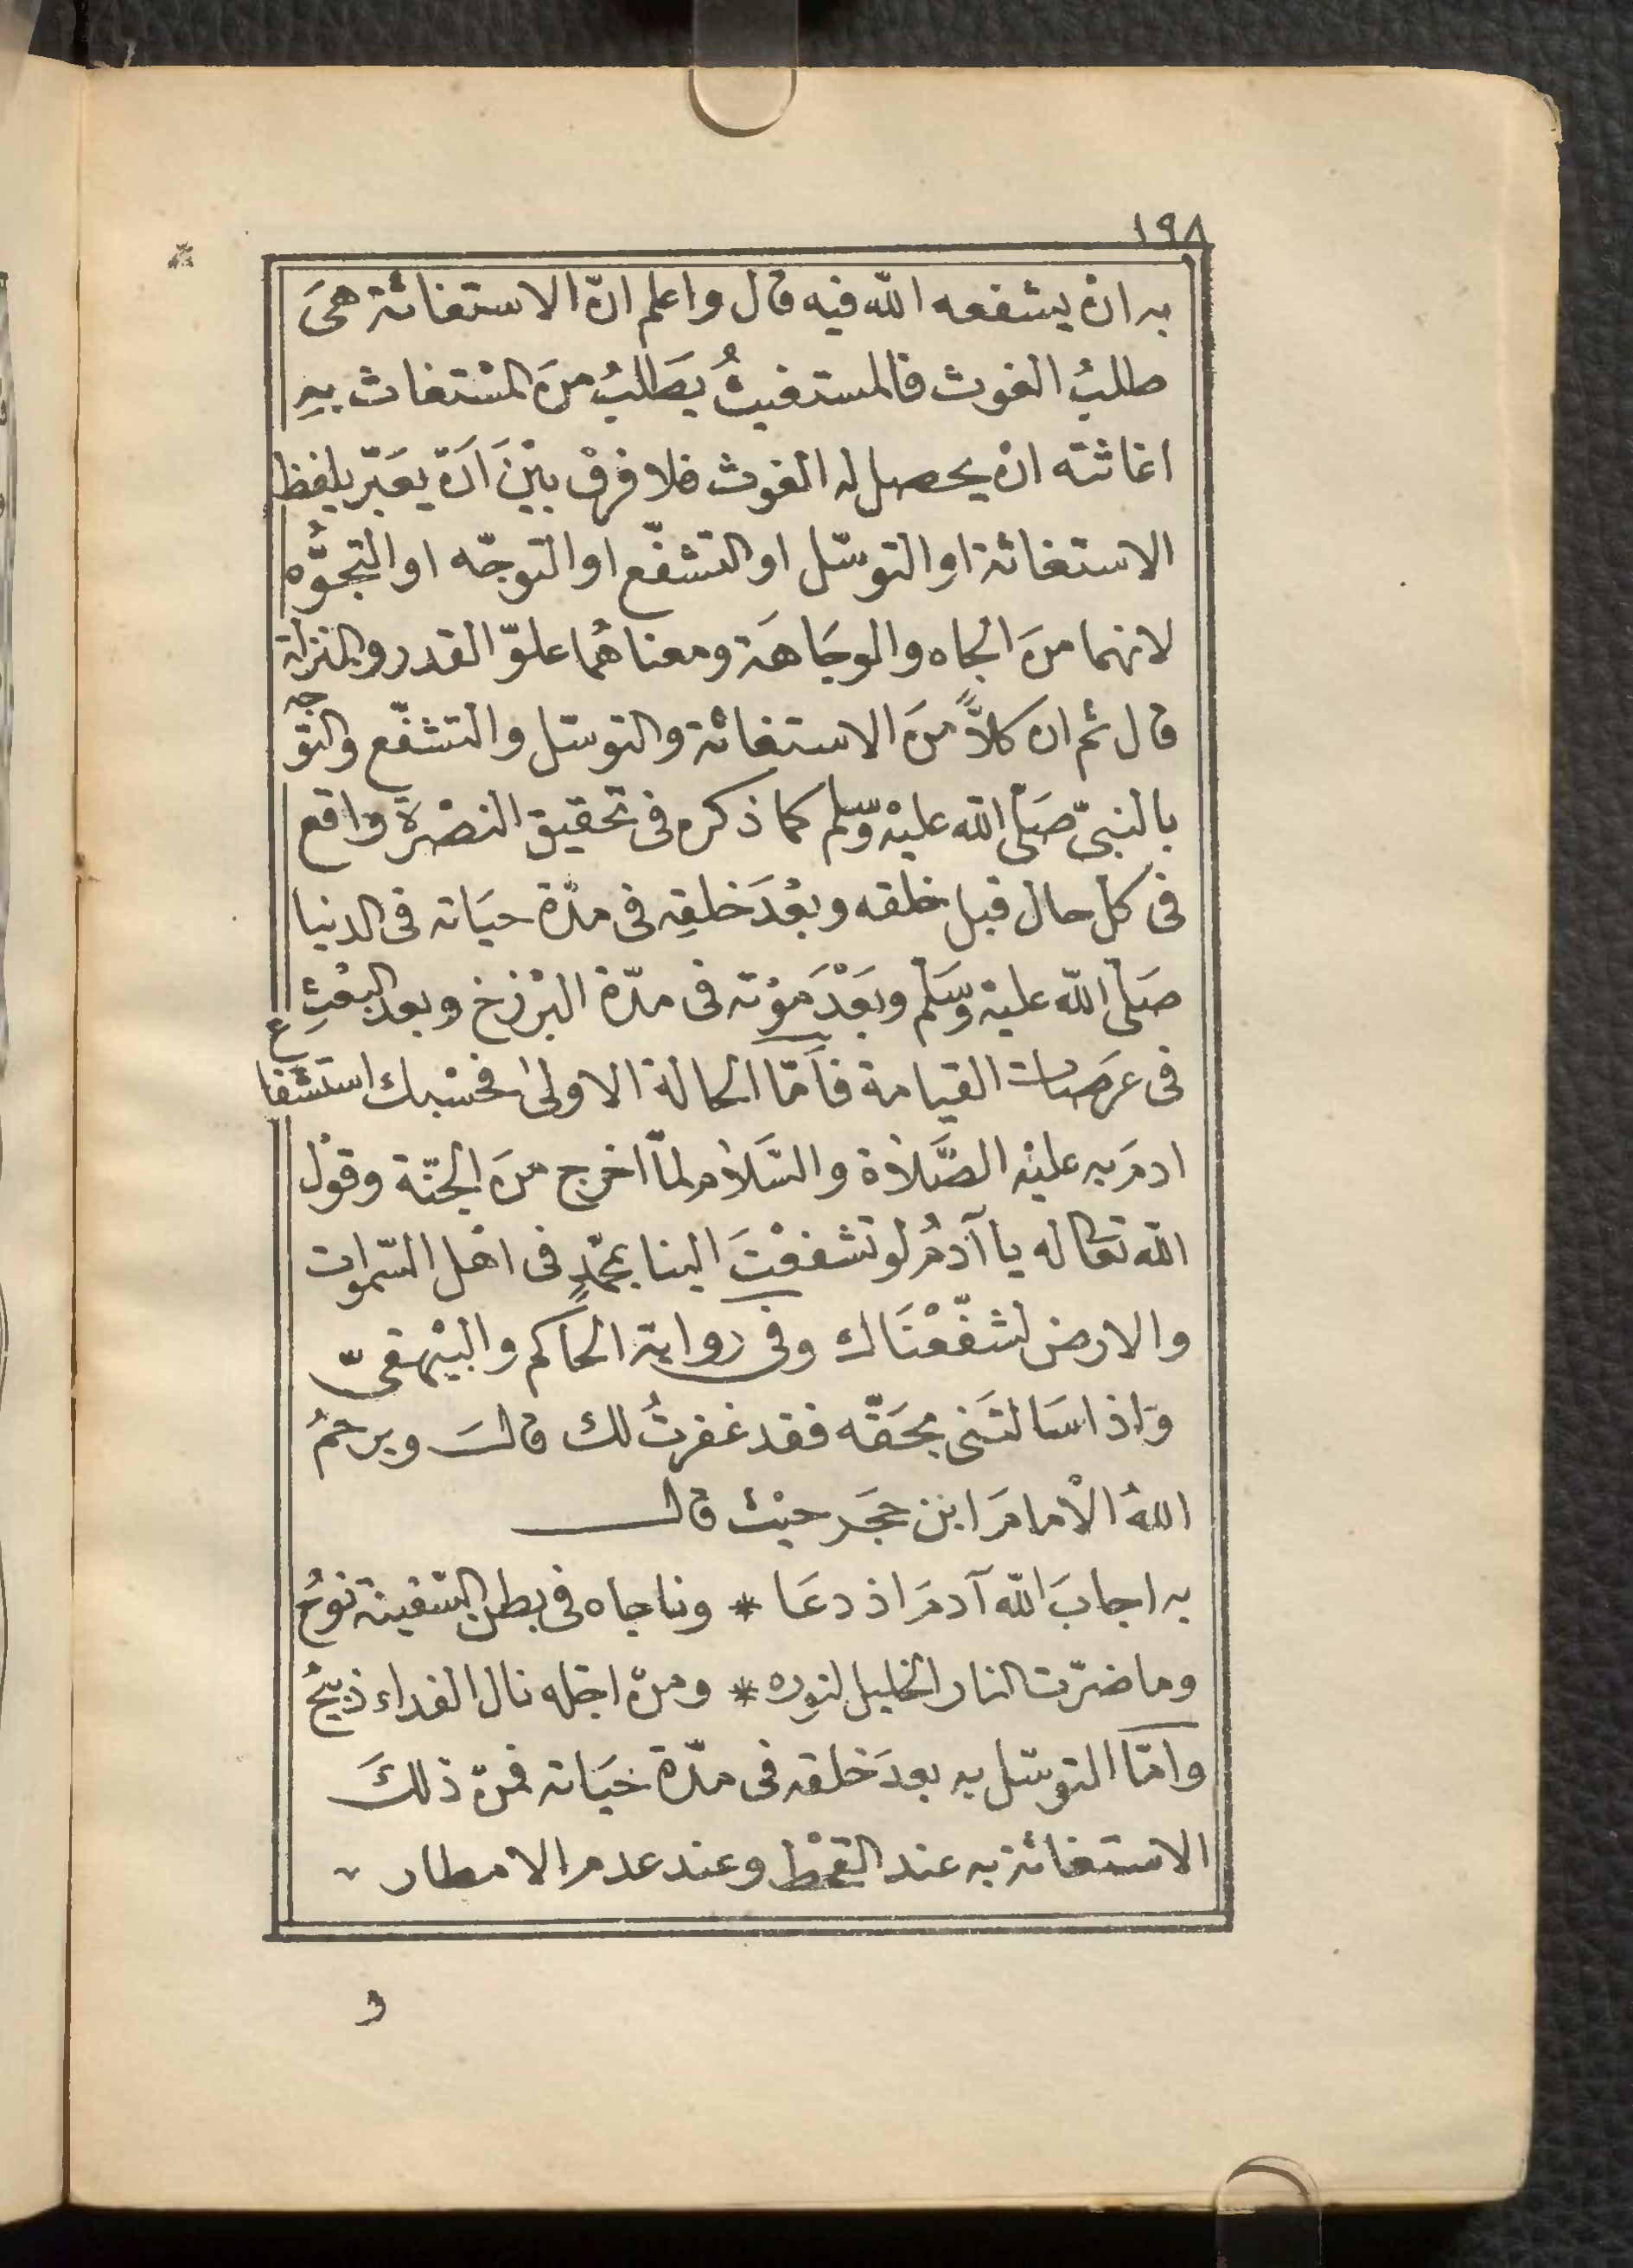 ١٩٨
به ان يشفعه الله فيه قال واعلم انّ الاستغاثة هىَ
طلبُ الغوث فالمستغيثُ يَطَلبُ منَ المسْتغاث بهِ
اغاثته ان يحصل له الغوث فلا فرقْ بيْنَ اَنْ يعَبّر بلفظ
الاستغاثة او التوسّل او التشفّع او التوجّه او التجوُّه
لانهما منَ الجاه والوجَاهَة ومعناهُما علوّ القدر والمنزلة
قال ثم ان كلاًّ منَ الاستغاثة والتوسّل والتشفّع والتوّجه
بالنبىّ صَلّى الله عليْه وسّلم كما ذكره فى تحقيق النصْرَة واقع
فى كل حال قبل خلقه وبعْدَ خلقِه فى مدّة حيَاته فى الدنيا
صَلى الله عليْه وسَلم وبَعْدَ مَوْته فى مدّة البْرزخ وبعد البعْثِ
فى عرَصات القيامة فاَمّا الحالة الاولىٰ فحسْبك استشْفاع
ادمَ به عليْه الصَّلاة والسَّلام لمّا اخرج منَ الجنّة وقول
الله تعالى له يا آدمُ لو تشفعْتَ الينا بمحمّدٍ فى اهْل السّموات
والارض لشفّعْنَاك وفى رواية الحاكم والبيْهقىّ
وَاذ اسَالتَنى بحَقّه فقد غفرتُ لك قال ويرحمُ
اللهُ الْامامَ ابْن حجَر حيْث قال
به اجابَ الله آدمَ اذ دعَا * وناجاه فى بطن السّفينة نوحُ
وما ضرّت النار الخليل لنوره * ومنْ اجْله نال الفداء ذبيْحُ
وامّا التوسّل به بعدَ خلقه فى مدّة حيَاته فمنْ ذلكَ
الاستغاثة به عند القحْط وعند عدم الامطار
و